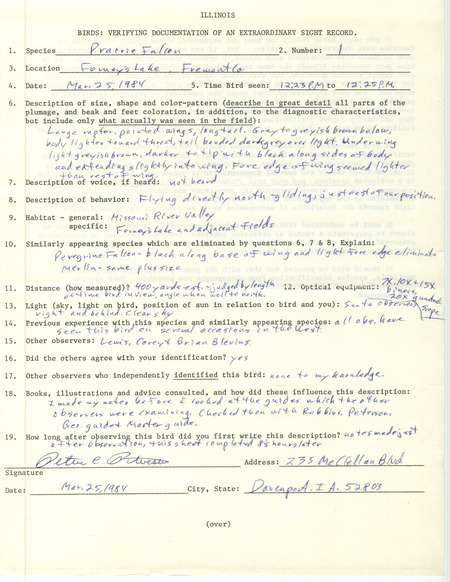 ILLINOIS
BIRDS: VERIFYING DOCUMENTATION OF AN EXTRAORDINARY SIGHT RECORD.
1. Species Prairie Falcon 2. Number: 1
3. Location Forney's Lake, Fremont Co
4. Date: Mar. 25, 1984 5. Time Bird seen: 12:23 P.M to 12:25 P.M.
6. Description of size, shape and color-pattern (describe in great detail all parts of
the plumage, and beak and feet coloration, in addition, to the diagnostic characteristics,
but include only what actually was seen in the field):
Large raptor, pointed wings, long tail. Gray to greyish brown below,
body lighter toward throat, tail banded dark grey over light. Under wing
light greyish brown, darker to tip with black along sides of body
and extending slightly into wing. Fore edge of wing seemed lighter
than rest of wing.
7. Description of voice, if heard: not heard
8. Description of behavior: Flying directly north - gliding, just east of our position.
9. Habitat - general: Missouri River Valley
specific: Forney's Lake and adjacent Fields
10. Similarly appearing species which are eliminated by questions 6, 7 & 8, Explain:
Peregrine Falcon - black along base of wing and light fore edge eliminate
Merlin - same plus size
11. Distance (how measured)? 400 yards est. - judged by length
of time bird in view, angle when well to north.
12. Optical equipment: 7X, 10X + 15X
binocs,
20X scope
13. Light (sky, light on bird, position of sun in relation to bird and you): Sun to observers
right and behind. Clear sky
14. Previous experience with this species and similarly appearing species: all obs. have
seen this bird on several occasions in the West
15. Other observers: Lewis, Corey & Brian Blevins
16. Did the others agree with your identification? yes
17. Other observers who independently identified this bird: none to my knowledge.
18. Books, illustrations and advice consulted, and how did these influence this description:
I made my notes before I looked at the guides which the other
observers were examining. Checked then with Robbins, Peterson,
Geo. guide & Master guide.
19. How long after observing this bird did you first write this description? notes made just
after observation, this sheet completed 8½ hours later
Peter C Petersen Address: 235 McClellan Blvd
Signature
Date: Mar. 25, 1984 City, State: Davenport, IA. 52803
(over)